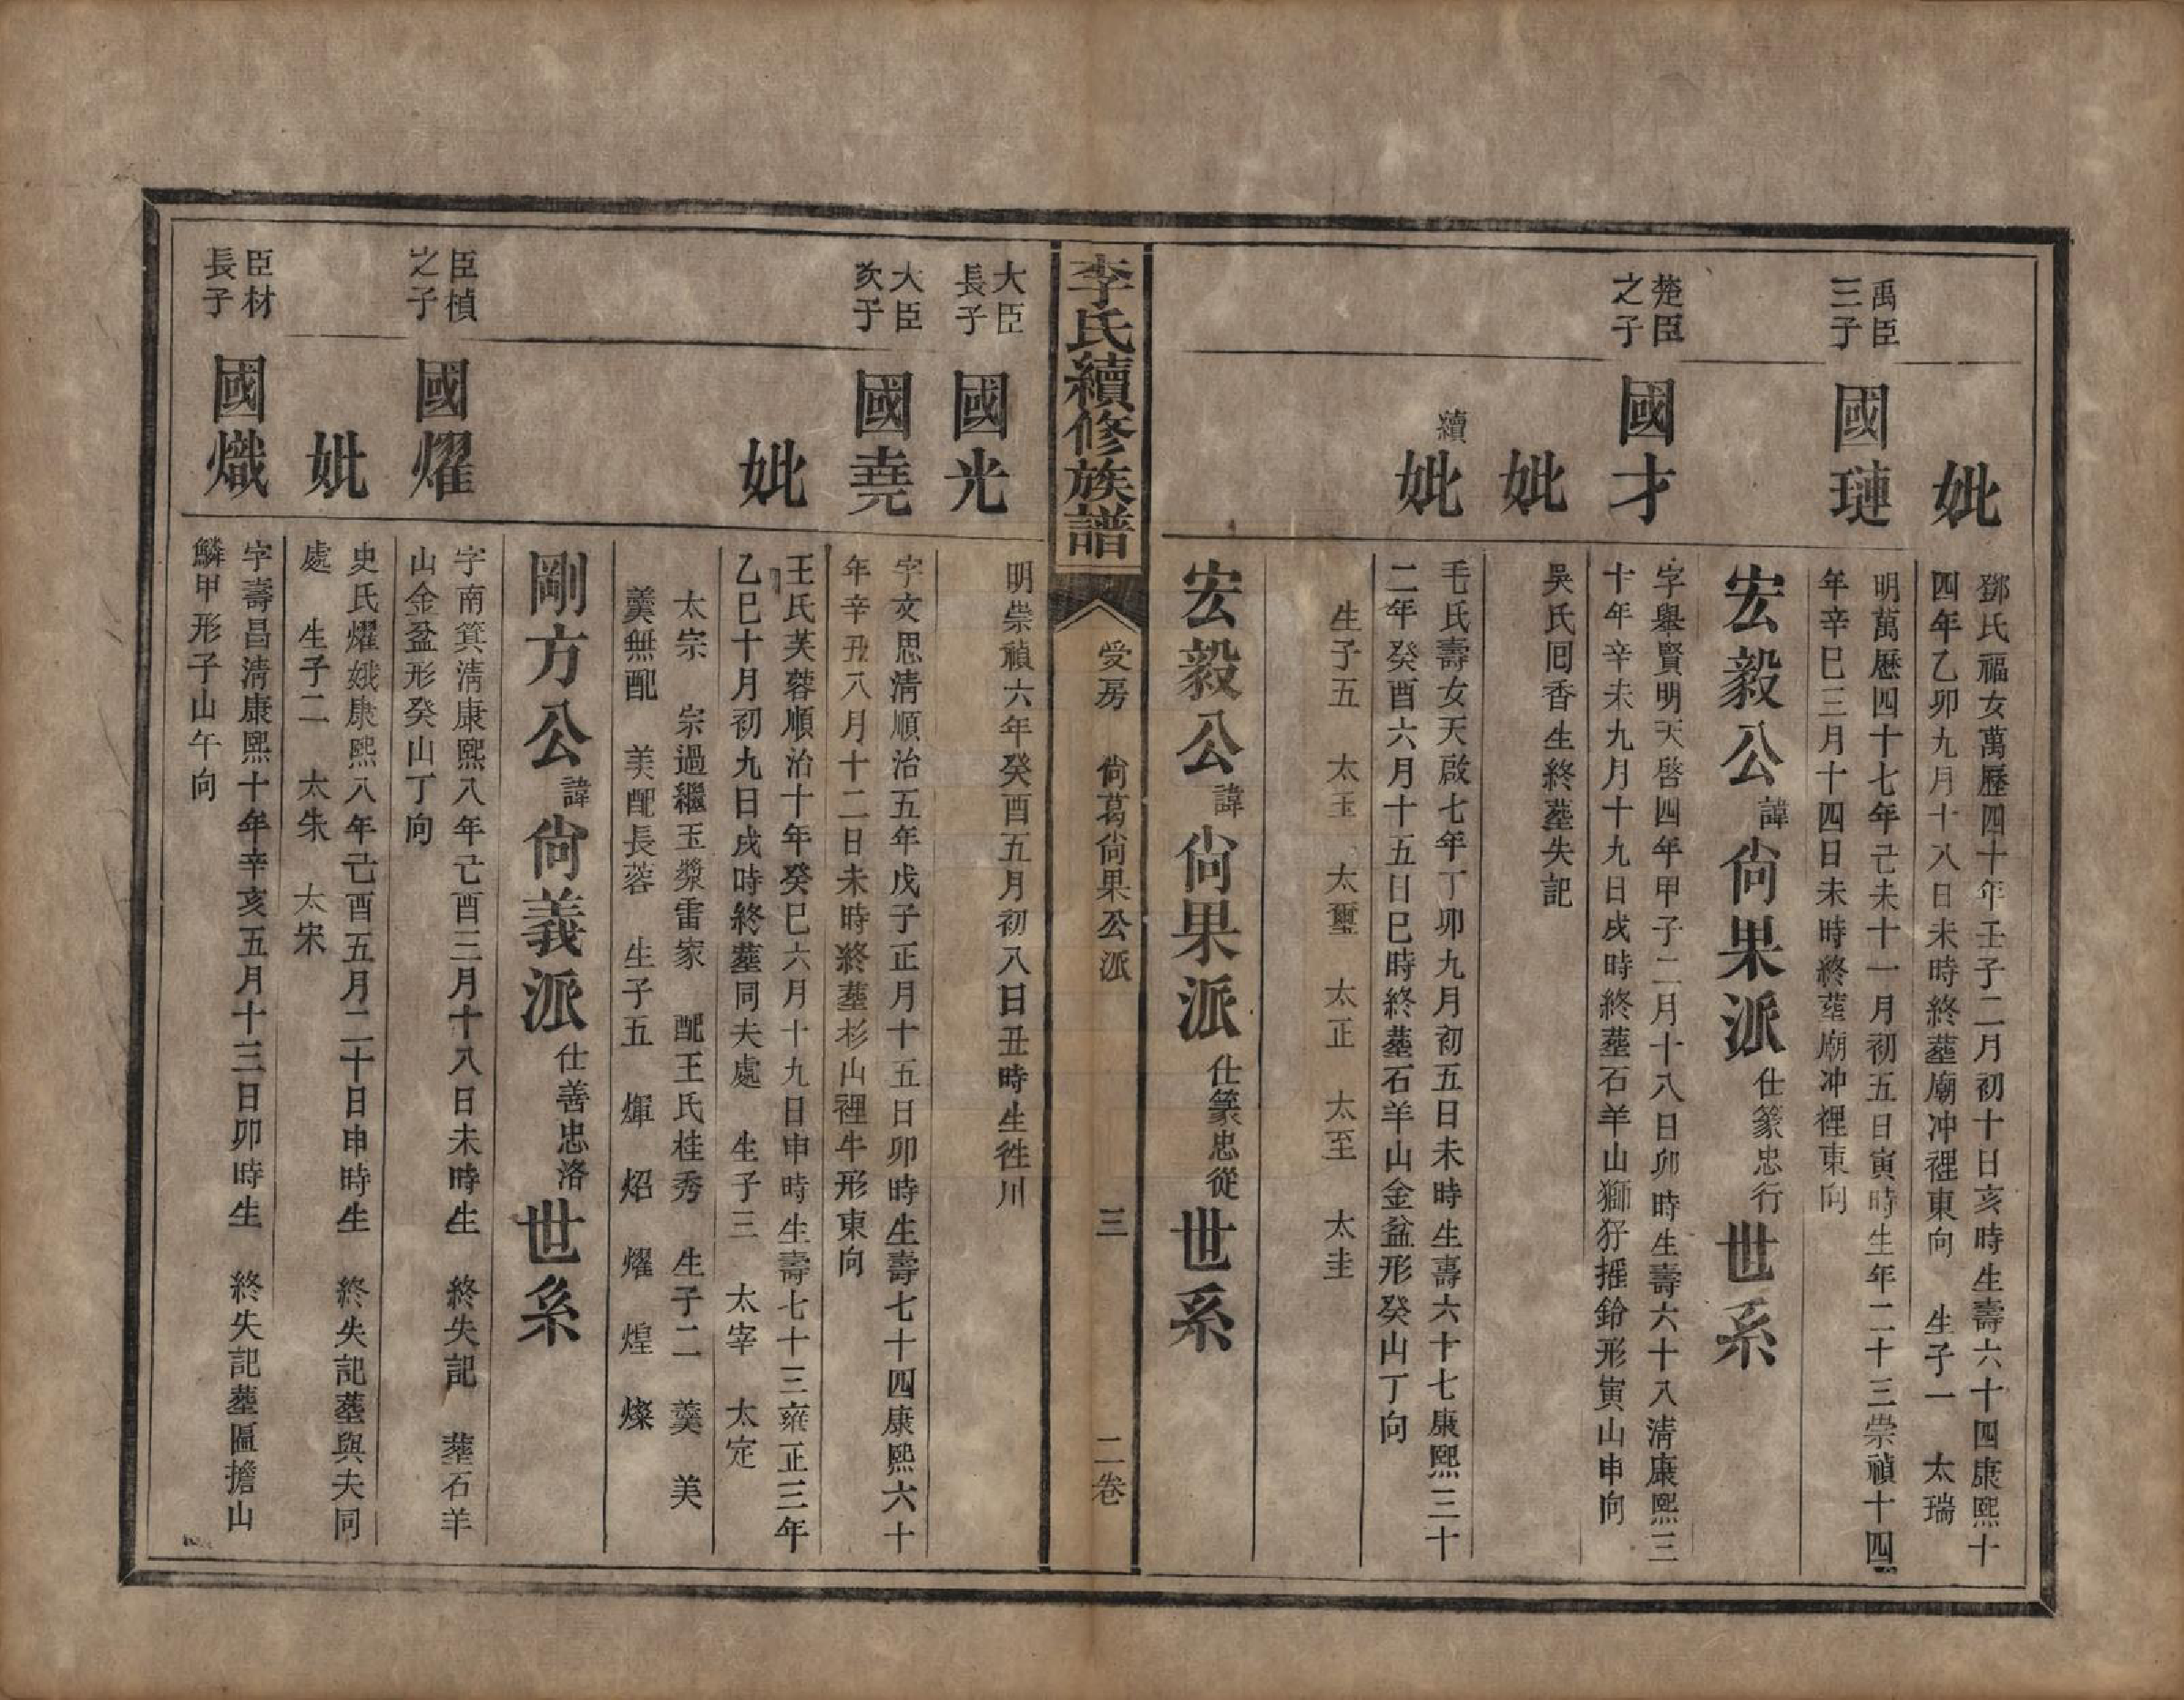 妣
鄧氏福女萬歷四十年壬子二月初十日亥時生壽六十四康熙十
四年乙卯九月十八日未時終塟廟冲裡東向 生子一 太瑞
禹臣
三子
國璉
明萬歷四十七年己未十一月初五日寅時生年二十三崇禎十四
年辛巳三月十四日未時終塟廟冲裡東向
宏毅公諱尙果派仕篆忠行世系
楚臣
之子
國才
字舉賢明天啓四年甲子二月十八日卯時生壽六十八淸康熙三
十年辛未九月十九日戌時終塟石羊山獅犴搖鈴形寅山申向
妣
吳氏囘香生終塟失記
續
妣
毛氏壽女天啟七年丁卯九月初五日未時生壽六十七康熙三十
二年癸酉六月十五日巳時終塟石羊山金盆形癸山丁向
生子五 太玉 太璽 太正 太至 太圭
宏毅公諱尙果派仕篆忠從世系
李氏續修族譜
受房 尙葛尙果公派 三 二卷
大臣
長子
國光
明崇禎六年癸酉五月初八日丑時生徃川
大臣
次子
國堯
字文思淸順治五年戊子正月十五日卯時生壽七十四康熙六十
年辛丑八月十二日未時終塟杉山裡牛形東向
妣
王氏芙蓉順治十年癸巳六月十九日申時生壽七十三雍正三年
乙巳十月初九日戌時終塟同夫處 生子三 太宰 太定
太宗 宗過繼玉漿雷家 配王氏桂秀 生子二 羹 美
羹無配 美配長蓉 生子五 煇 炤 燿 煌 燦
剛方公諱尙義派仕善忠洛世系
臣楨
之子
國燿
字南箕淸康熙八年己酉三月十八日未時生 終失記 塟石羊
山金盆形癸山丁向
妣
史氏燿娥康熙八年己酉五月二十日申時生 終失記塟與夫同
處 生子二 太朱 太宋
臣材
長子
國熾
字壽昌淸康熙十年辛亥五月十三日卯時生 終失記塟匾擔山
鱗甲形子山午向